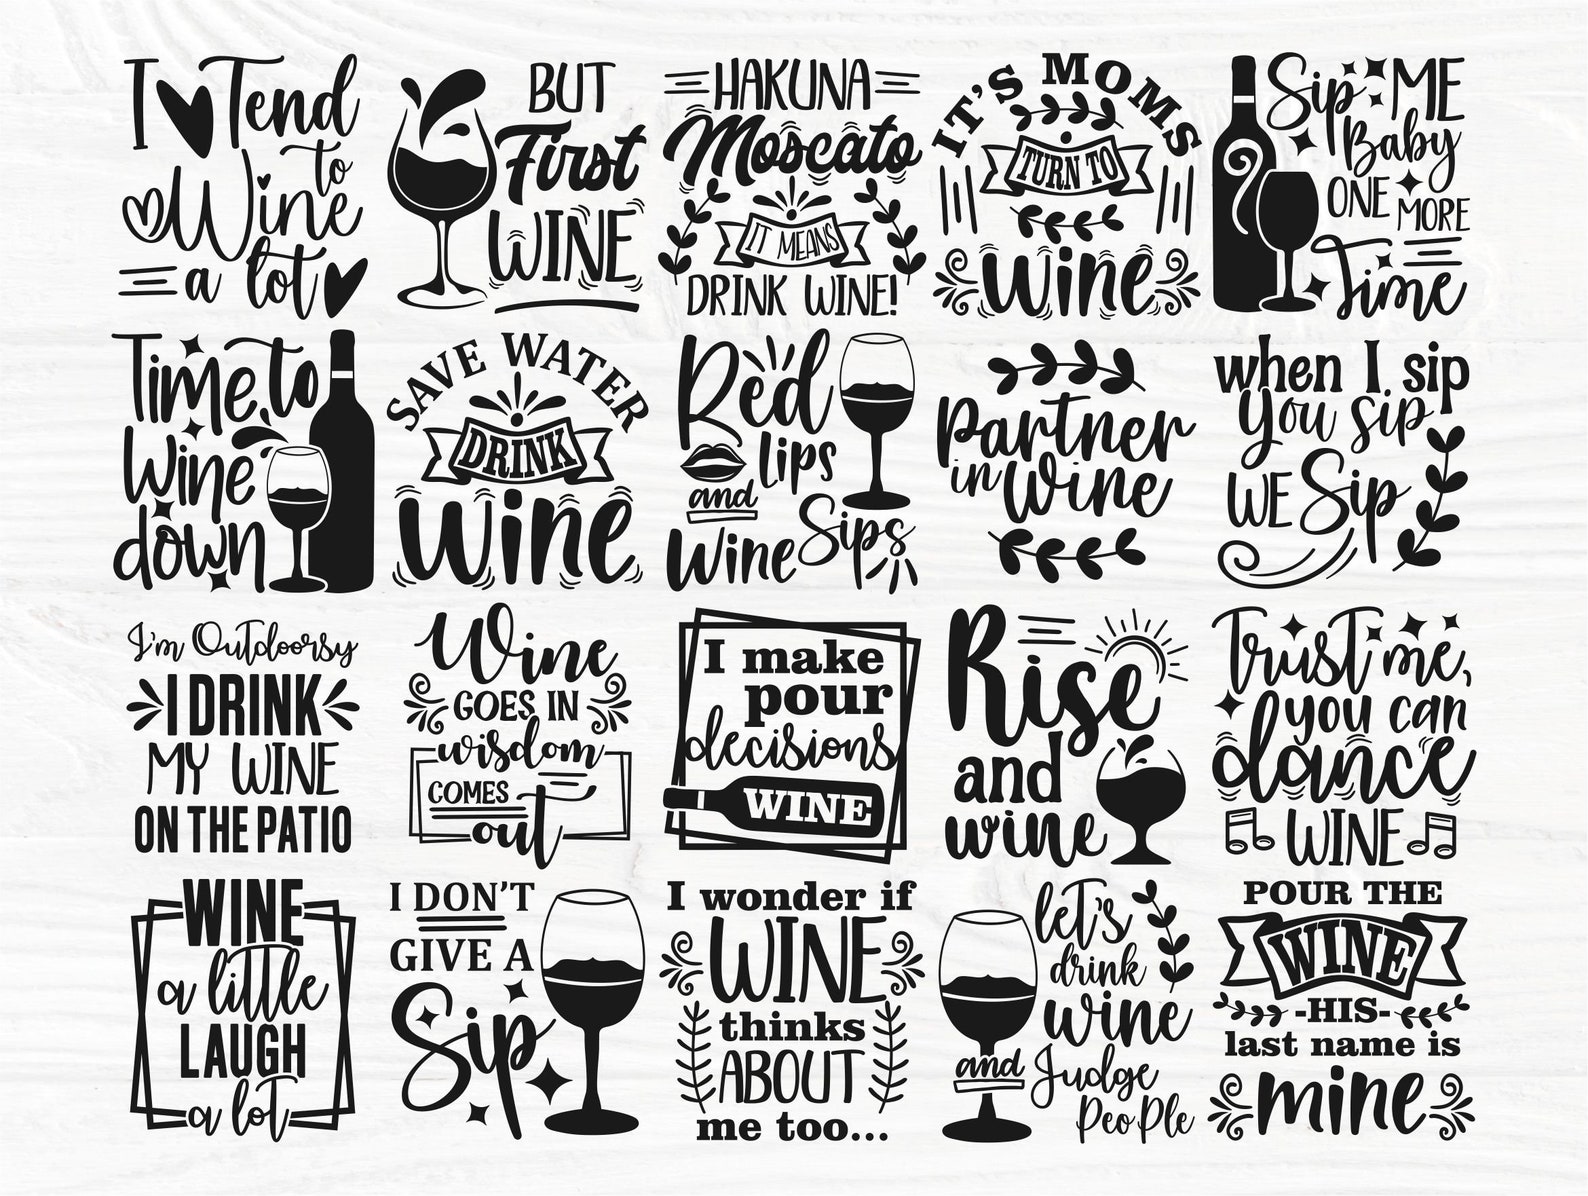 I Tend
to
Wine
a lot
BUT
First
WINE
HAKUNA
Moscato
IT MEANS
DRINK WINE!
IT'S MOMS
TURN TO
wine
Sip ME
Baby
ONE MORE
Time
Time to
Wine
down
SAVE WATER
DRINK
wine
Red
Lips
and
Wine Sips
Partner
in Wine
when I sip
You sip
WE Sip
I'm Outdoorsy
I DRINK
MY WINE
ON THE PATIO
Wine
GOES IN
wisdom
COMES
out
I make
pour
decisions
WINE
Rise
and
wine
Trust me,
you can
dance
WINE
WINE
a little
LAUGH
a lot
I DON'T
GIVE A
Sip
I wonder if
WINE
thinks
ABOUT
me too...
let's
drink
wine
and Judge
PeoPle
POUR THE
WINE
-HIS-
last name is
mine